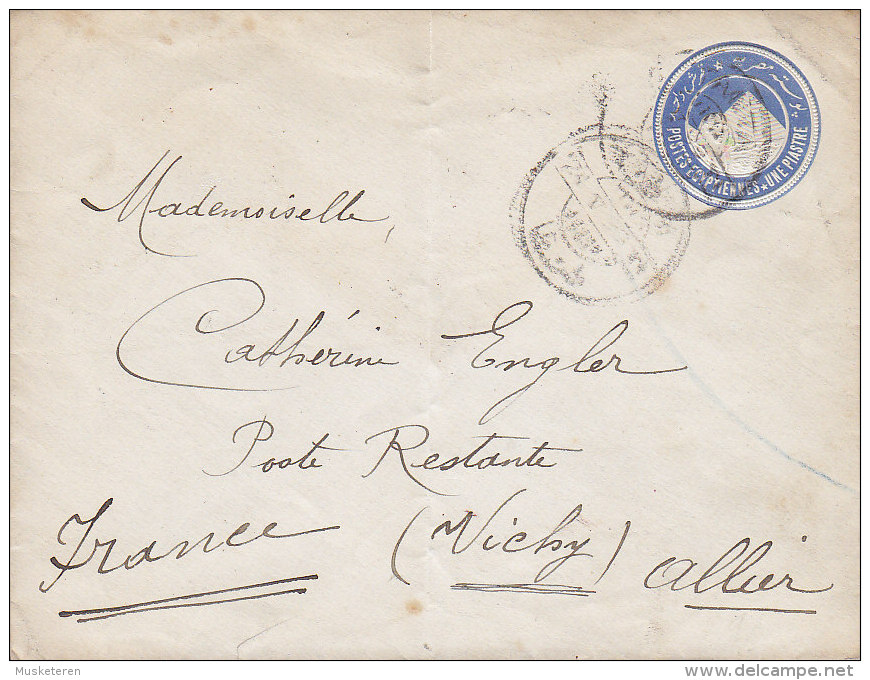 بوستة مصرية
POSTES EGYPTIENNES ★ UNE PIASTRE
Mademoiselle,
Cathérine Engler
Poste Restante
France (Vichy) Allier
Musketeren
delcampe.net